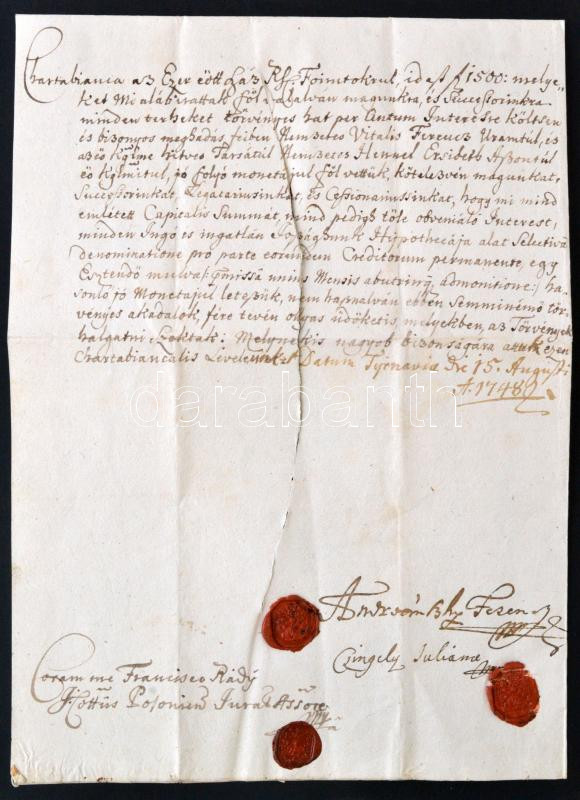 Chartabianca az Ezer eött Száz Rh. Forintokrul, id est f 1500: melye-
ket Mi aláb irattak föl válalván magunkra, és Successorinkra
minden terheket törvényes hat per Centum Interesre költsön
és bizonyos meghadás feiben Nemzetes Vitalis Ferencz Uramtul, és
azeö hitves Társátúl Nemzetes Hennel Ersibeth Aszontúl
eö jó folyo monetájul föl vettük, kötelezvén magunkat,
Successorinkat, Legatariusinkat, és Cessionariussinkat, hogy mi mind
emletett Capitalis Summát, mind pedigh töle obveniáló Interest,
minden Ingó és ingatlan Joszágbunk Hypothecája alat Selectivá
denominatione pro parte eorundem Creditorum permanente, egy
Esztendö mulva /: praemissa unius Mensis admonitione :/ ha-
sonló jó Monetájul leteszük, nem használván ebben Semminémö tör-
vényes akadalok, fire tevén olyas üdöketis, melyekben, az Törvények
halgatni Szoktak: Melynekis nagyob bizonságára attuk ezen
Chartabiancális Levelünket Datum Tyrnaviae Die 15. Augusti
A. 1748
Ferencz
Czingely Julianna
Coram me Francisco Rády
Posonien Jurat Assore
darabanth